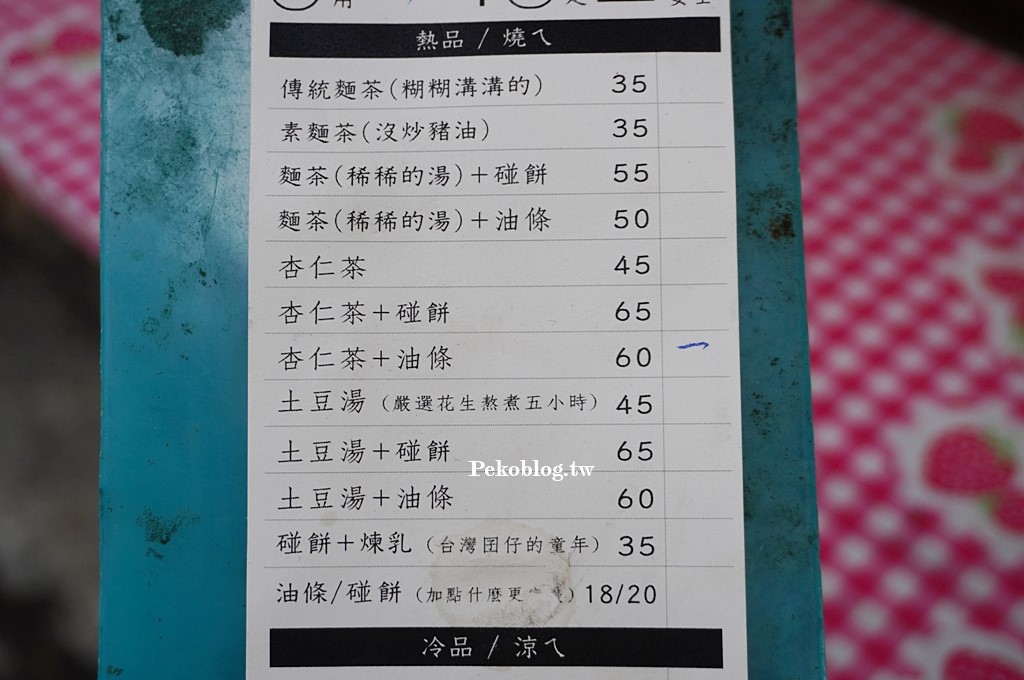 熱品 / 燒ㄟ
傳統麵茶(糊糊溝溝的) 35
素麵茶(沒炒豬油) 35
麵茶(稀稀的湯)+碰餅 55
麵茶(稀稀的湯)+油條 50
杏仁茶 45
杏仁茶+碰餅 65
杏仁茶+油條 60
土豆湯(嚴選花生熬煮五小時) 45
土豆湯+碰餅 65
Pekoblog.tw
土豆湯+油條 60
碰餅+煉乳(台灣囝仔的童年) 35
油條/碰餅(加點什麼更) 18/20
冷品 / 涼ㄟ